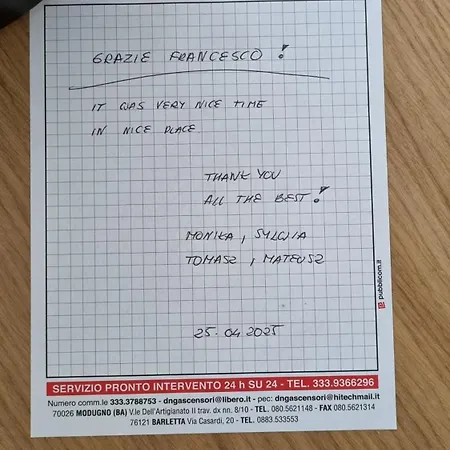 GRAZIE FRANCESCO!
IT WAS VERY NICE TIME
IN NICE PLACE
THANK YOU
ALL THE BEST!
MONIKA, SYLWIA
TOMASZ, MATEUSZ
25.04 2025
pubblicom.it
SERVIZIO PRONTO INTERVENTO 24 h SU 24 - TEL. 333.9366296
Numero comm.le 333.3788753 - dngascensori@libero.it - pec: dngascensori@hitechmail.it
70026 MODUGNO (BA) V.le Dell'Artigianato II trav. dx nn. 8/10 - TEL. 080.5621148 - FAX 080.5621314
76121 BARLETTA Via Casardi, 20 - TEL. 0883.533553